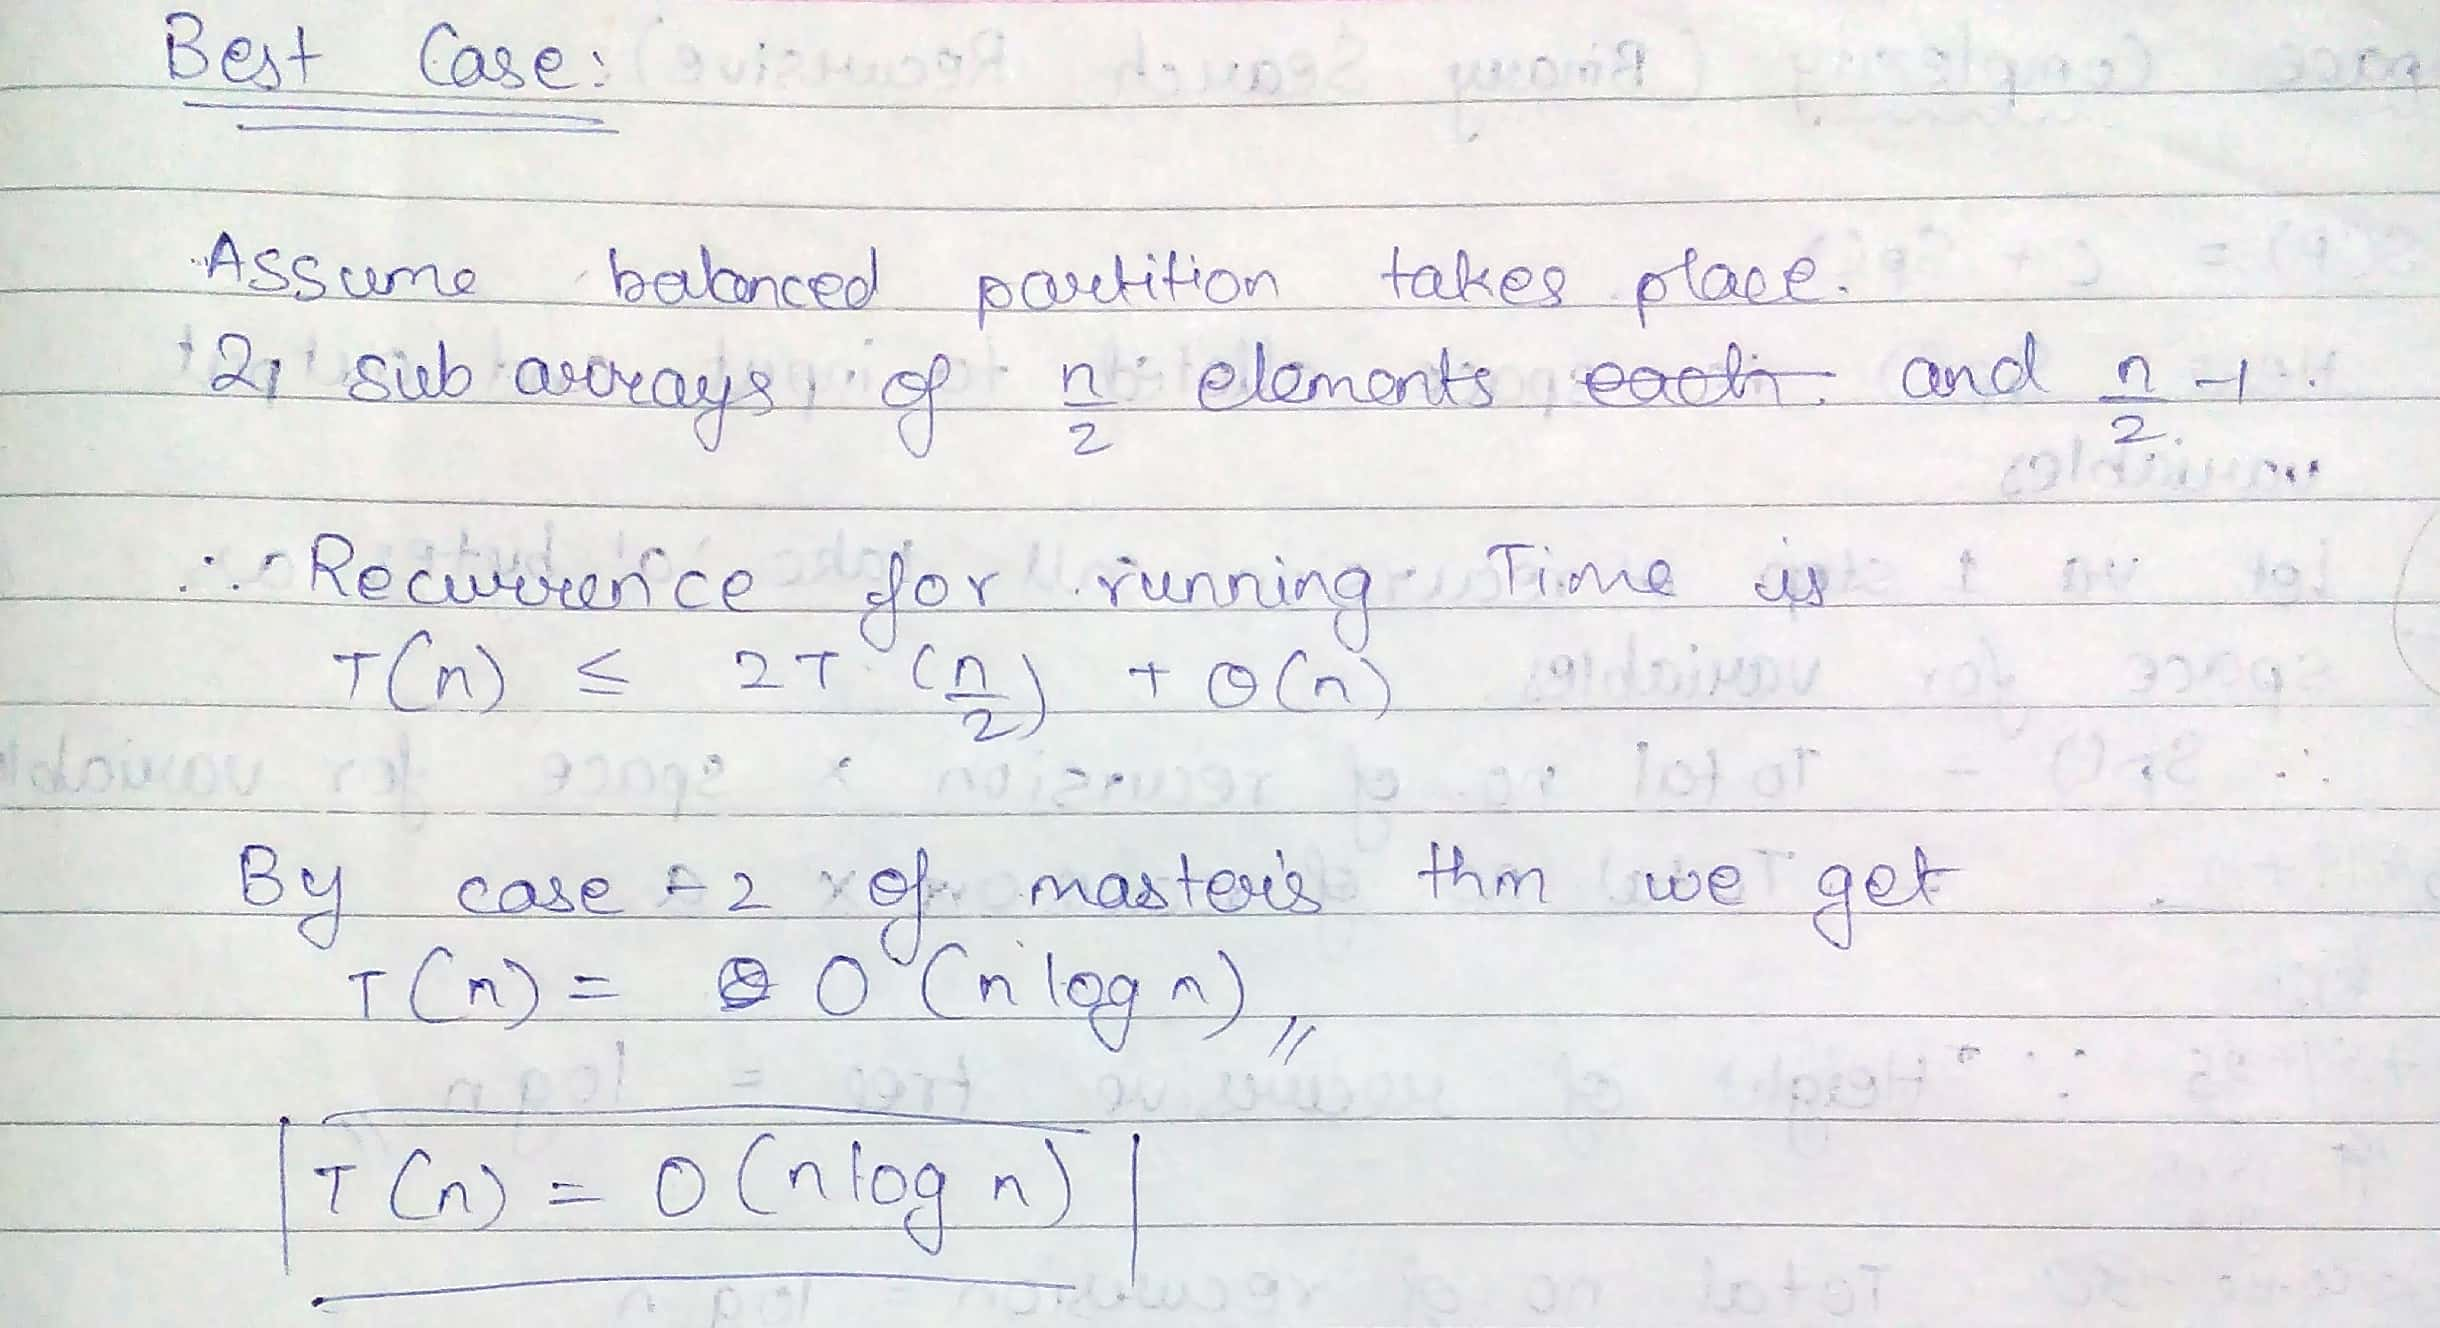 Best Case:
Assume balanced partition takes place.
2 sub arrays of n/2 elements each and n/2 -1.
∴ Recurrence for running Time is
T(n) ≤ 2T(n/2) + Θ(n)
By case 2 of master's thm we get
T(n) = O(n log n)
T(n) = O(n log n)